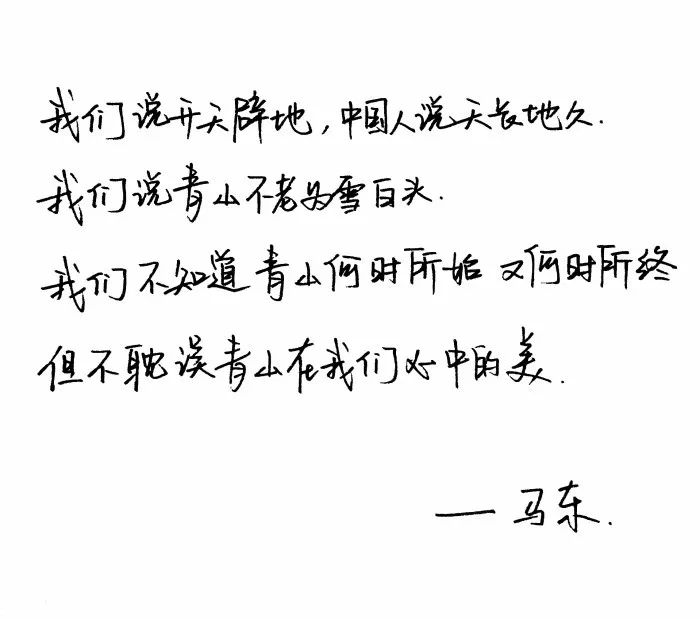 我们说开天辟地，中国人说天长地久.
我们说青山不老为雪白头.
我们不知道青山何时所始 又何时所终
但不耽误青山在我们心中的美.
—马东.